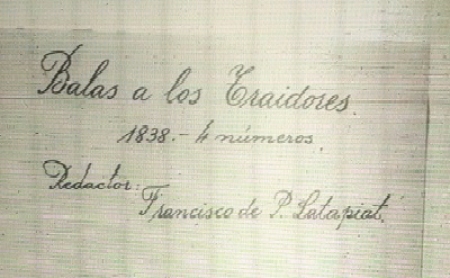 Balas a los Traidores.
1838.- 4 números.
Redactor:
Francisco de P. Latapiat